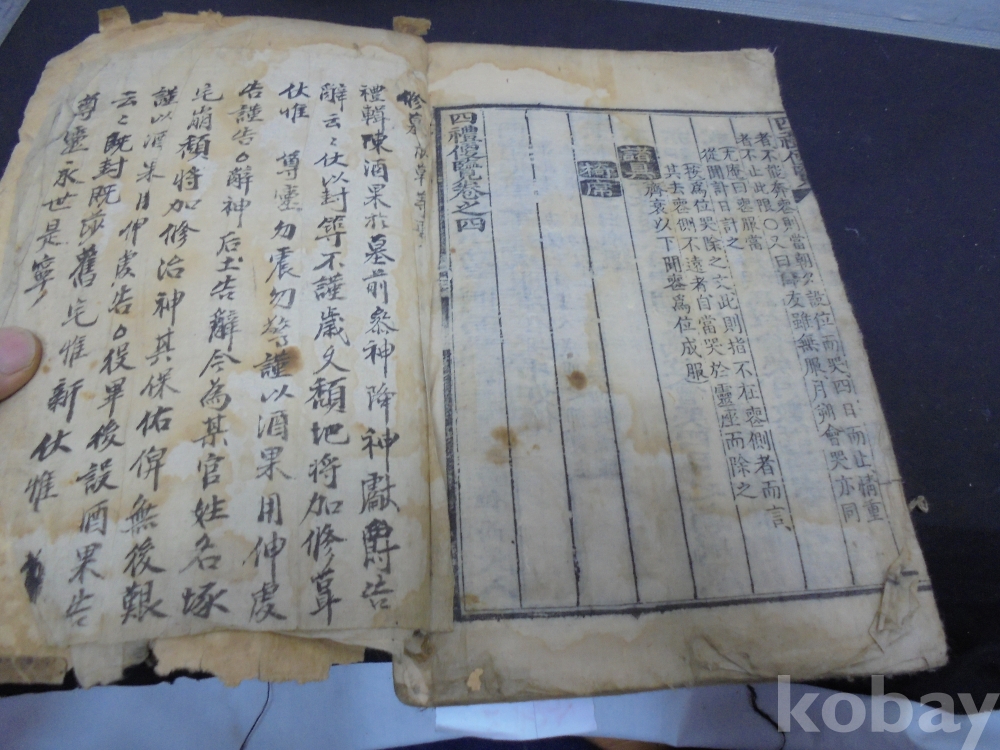 者不能奔喪則當朝夕設位而哭四日而止情重
者不止此限○又曰師友雖無服月朔會哭亦同
尤庵曰喪服當
從聞計日計之
按爲位哭除之文此則指不在喪側者而言
其去喪側不遠者自當哭於靈座而除之
齊衰以下聞喪爲位成服
諸具
椅席
四禮便覽卷之四
四禮便覽
禮輯陳酒果於墓前參神降神獻爵告
辭云々伏以封等不謹歲久頹圮將加修葺
伏惟 尊靈勿震勿驚謹以酒果用伸虔
告謹告○辭神后土告辭今為某官姓名塚
宅崩頹將加修治神其保佑俾無後艱
謹以酒果用伸虔告○役畢後設酒果告
云々既封既莎舊宅惟新伏惟
尊靈永世是寧
kobay